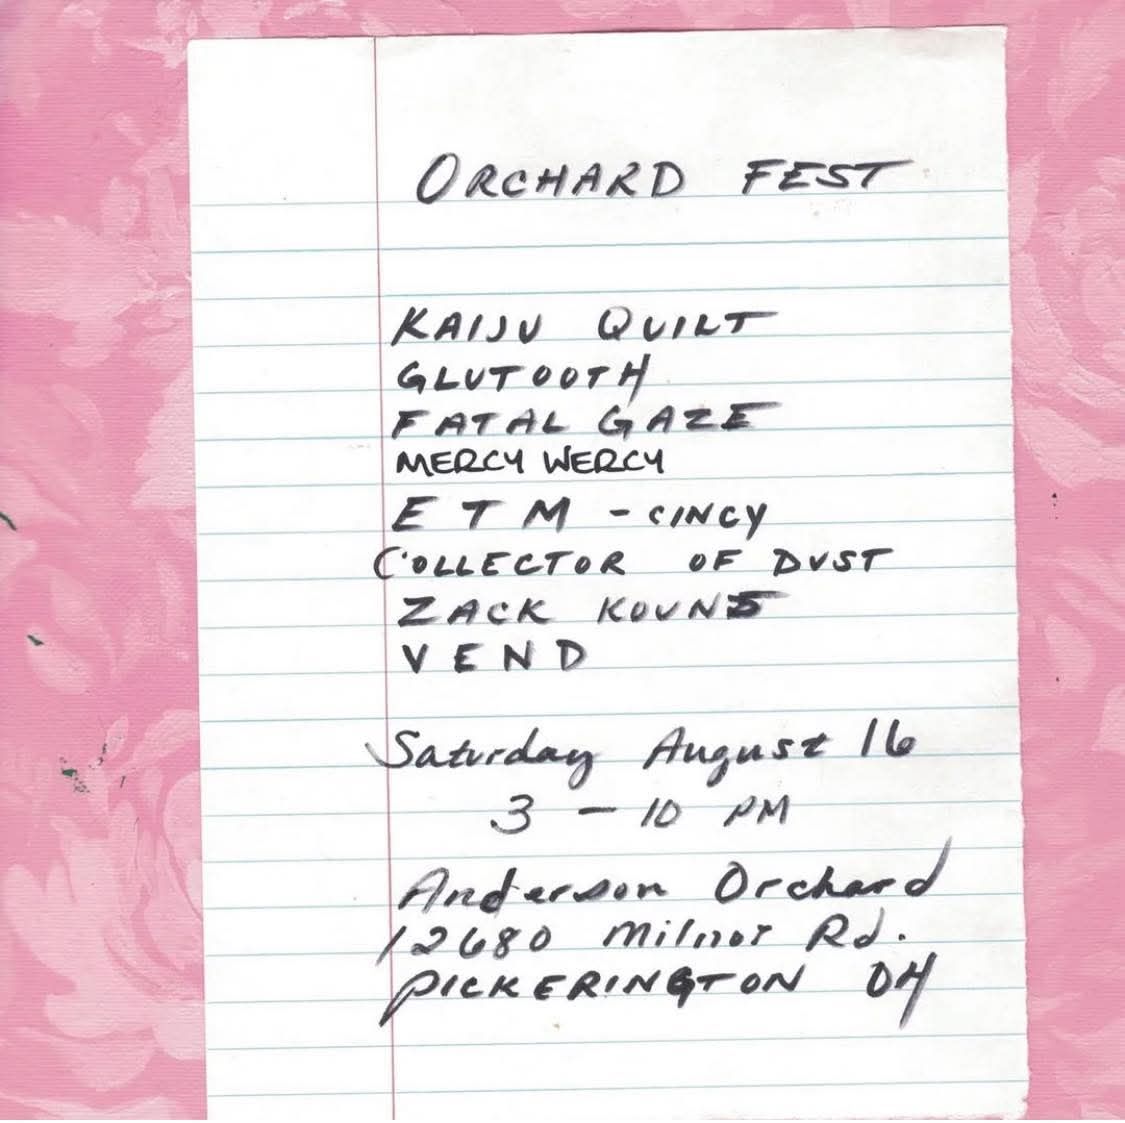 ORCHARD FEST
KAIJU QUILT
GLUTOOTH
FATAL GAZE
MERCY WERCY
E T M - CINCY
COLLECTOR OF DUST
ZACK KOUNS
VEND
Saturday August 16
3 - 10 PM
Anderson Orchard
12680 Milnor Rd.
PICKERINGTON OH